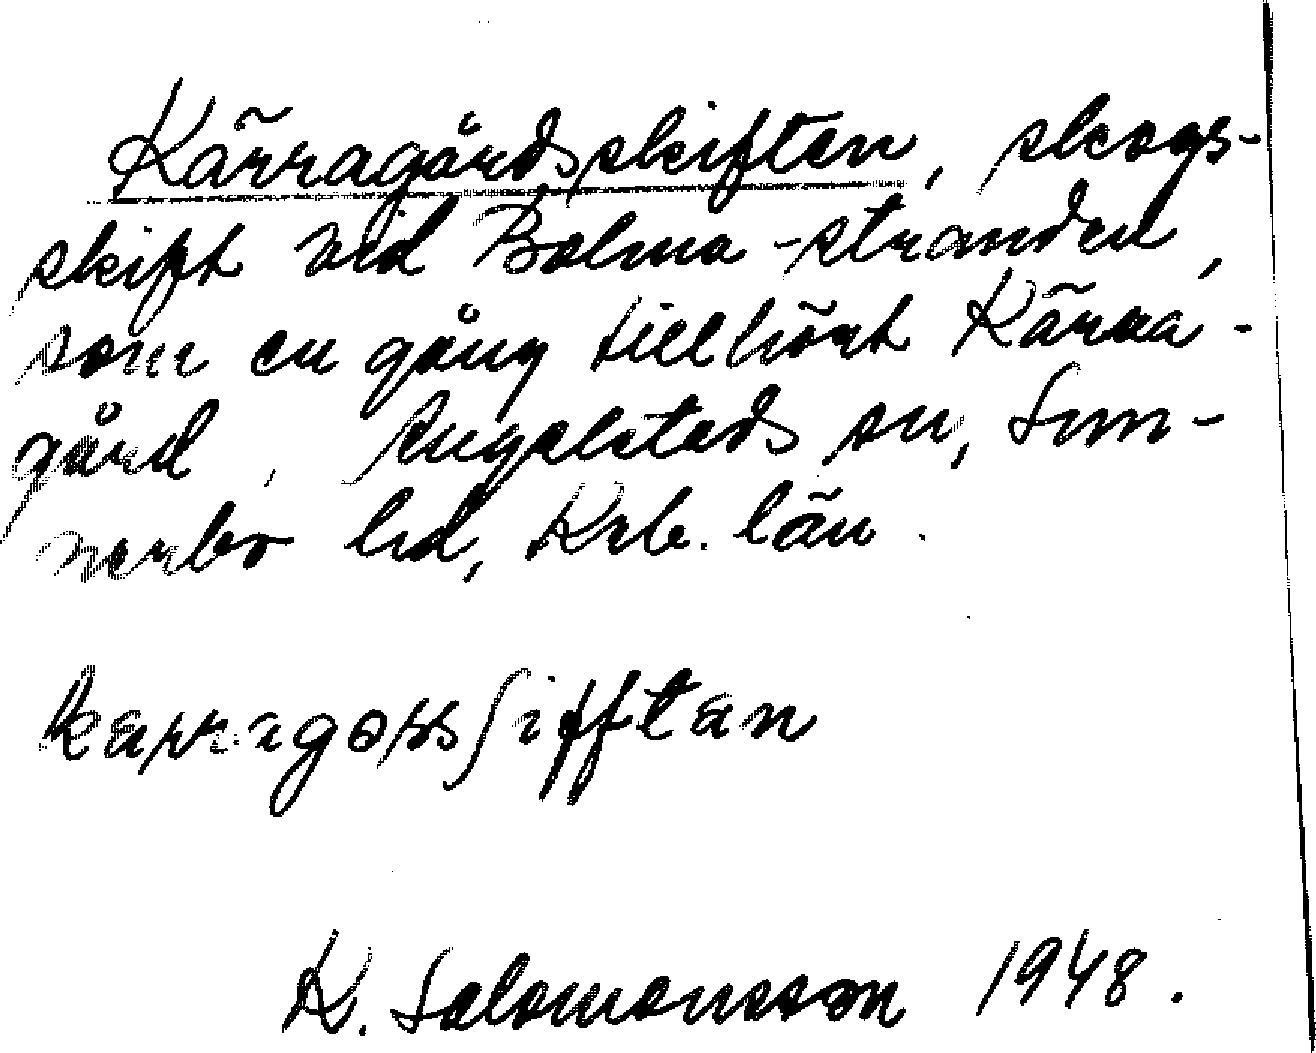 Kärragårdsskiften, skogs-
skift vid Bolma-stranden,
som en gång tillhört Kärra-
gård, Angelstads sn, Sun-
nerbo hd, Krb. län.
kærragossʃifftan
K. Salomonsson 1948.